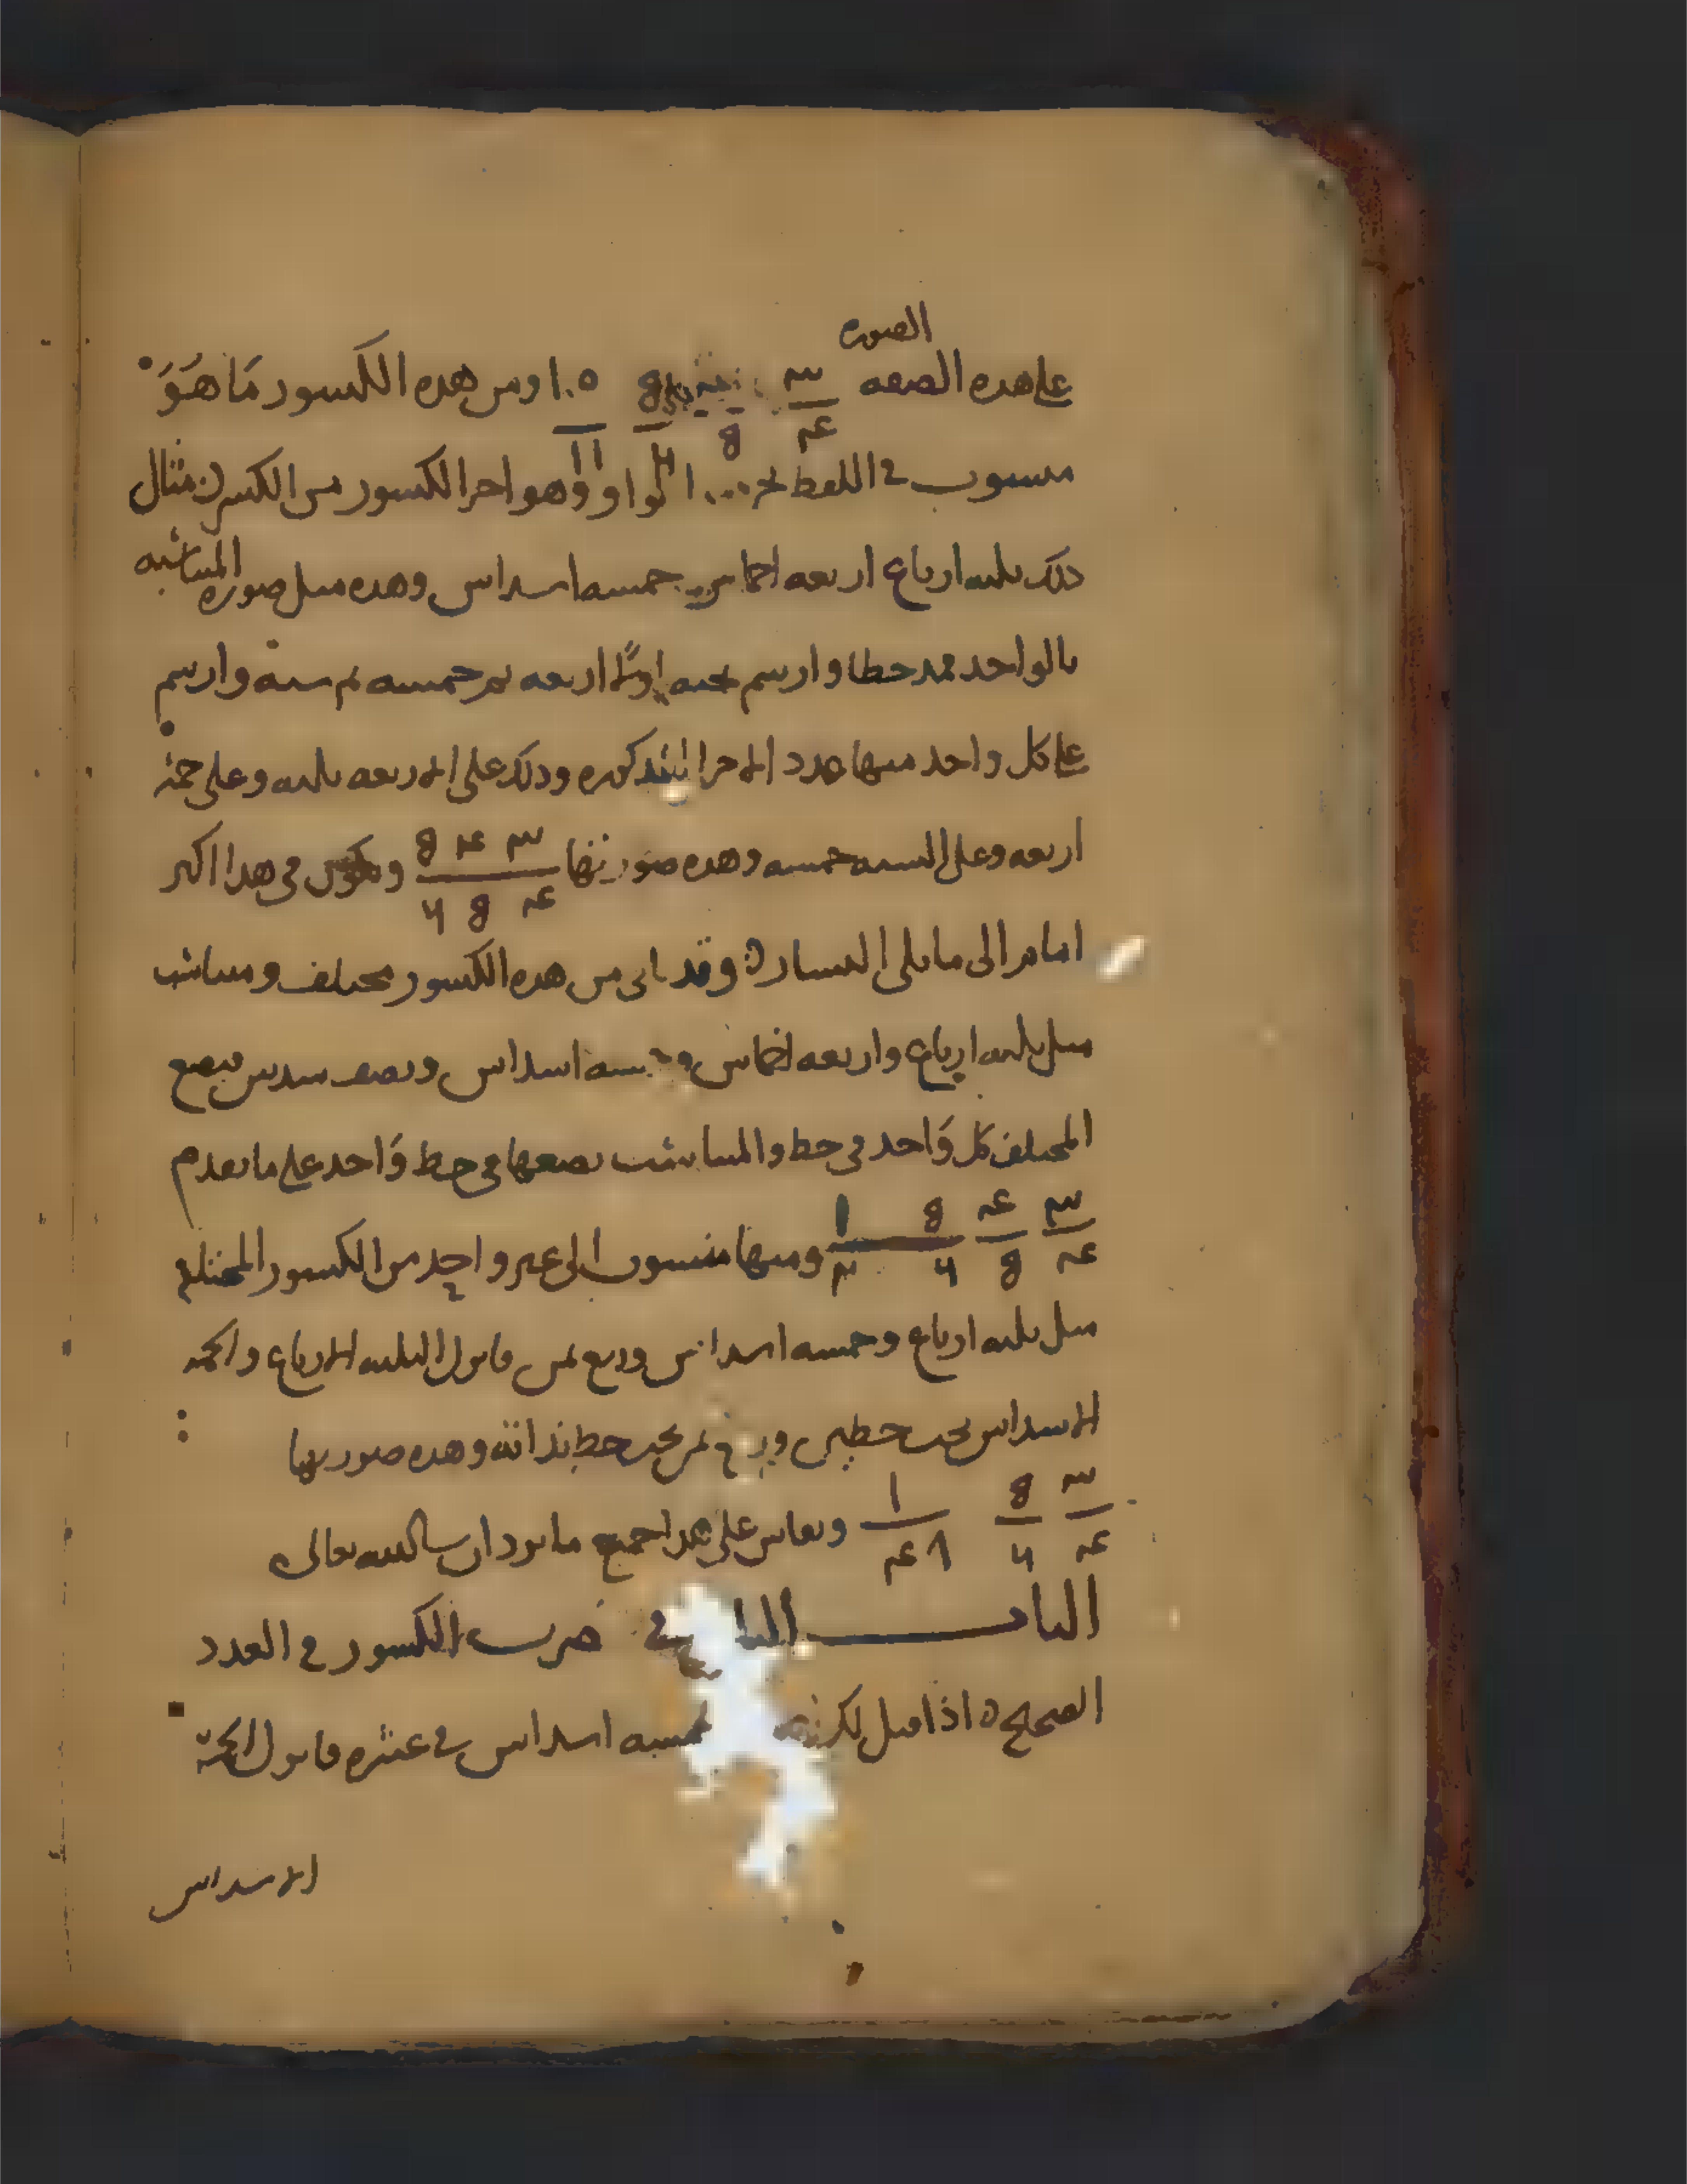 الصوره
على هده الصفه ٣ ٤ ٥ ٥ ٦ ١٠ ١١ ومن هده الكسور مَا هُوَ
منسوب في اللفظ الواو وهو اجزا الكسور من الكسر مثال
ذلك ثلثه ارباع اربعه اخماس خمسه اسداس وهده مثل صوره المتناسبه
بالواحد فمد خطا وارسم تحته اولًا اربعه ثم خمسه ثم سته وارسم
على كل واحد منها عدد الاجزا المذكوره ودلك على الاربعه ثلثه وعلى خمسه
اربعه وعلى السته خمسه وهده صورتها ٣ ٤ ٥ ٤ ٥ ٦ ويكون في هدا اكبر
الى ما يلي اليسار ٥ وقد ياتي من هده الكسور مختلف ومتناسب
مثل ثلثه ارباع واربعه اخماس وخمسه اسداس ونصف سدس فيضع
المختلف كل وَاحد في خط والمتناسب يضعها في خط وَاحد على ما تقدم
٣ ٤ ٤ ٥ ٥ ١ ٦ ٢ ومنها منسوب الى غير واحد من الكسور المختلفه
مثل ثلثه ارباع وخمسه اسداس وربع ثمن فانزل الثلثه الارباع والخمسه
الاسداس تحت خطين وربع ثمن تحت خط بذاته وهده صورتها
٣ ٤ ٥ ٦ ١ ٨ ٤ ويقاس على هدا جميع ما يرد ان شا الله تعالى
الباب في ضرب الكسور في العدد
الصحيح ٥ اذا قيل لك خمسه اسداس في عشره فانزل الخمسه
الاسداس